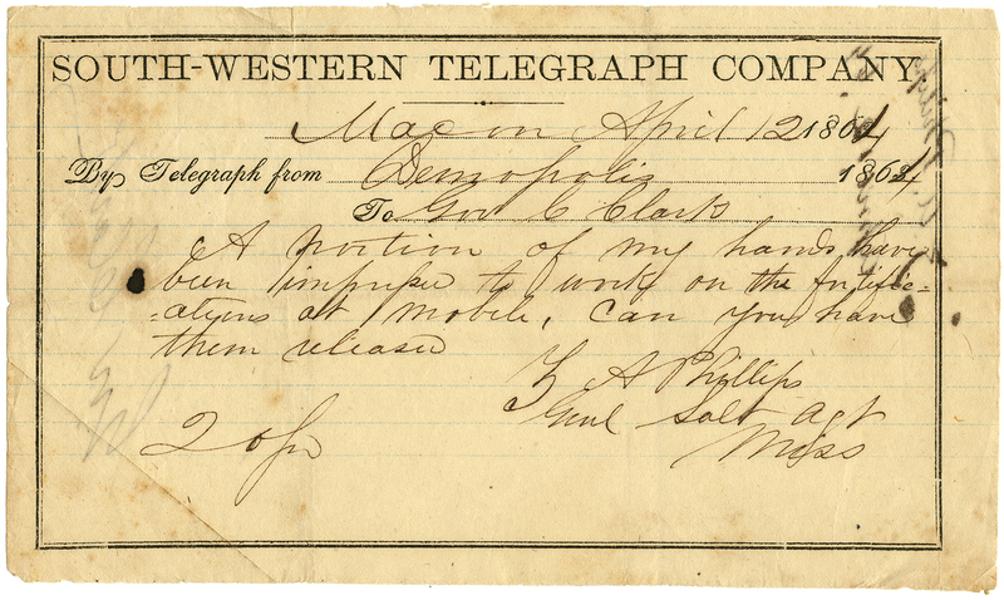 SOUTH-WESTERN TELEGRAPH COMPANY,
Macon April 12 1864
By Telegraph from Demopolis 1864
To Gov C Clark
A portion of my hands have
been to work on the fortific=
=ations at Mobile, Can you have
them released
A Phillips
Genl Salt Agt
Miss